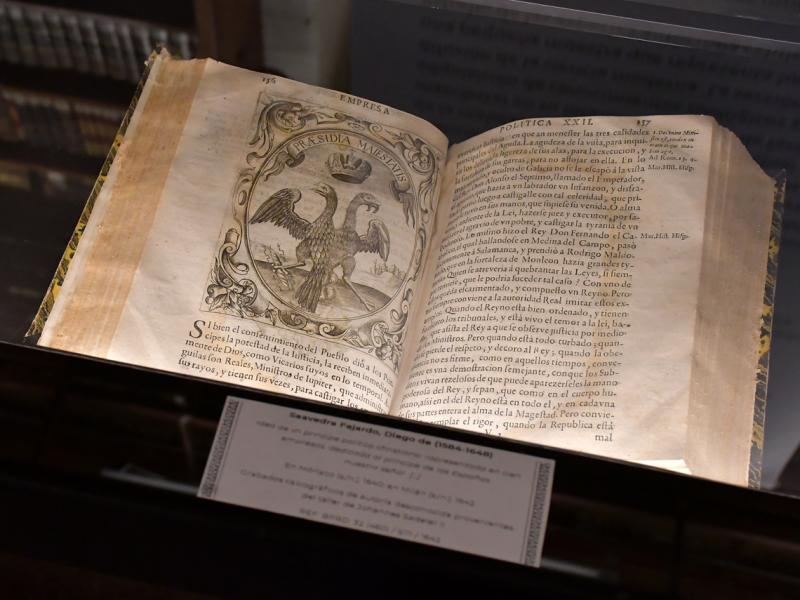 156
EMPRESA
PRÆSIDIA MAIESTATIS
Si bien el consentimiento del Pueblo diò à los Prin-
cipes la potestad de la Iusticia, la reciben inmediata-
mente de Dios, como Vicarios suyos en lo temporal.
guilas son Reales, Ministros de Iupiter, que administran
sus rayos, y tienen sus vezes, para castigar los
POLITICA XXII. 157
en que an menester las tres calidades
del Aguila. La agudeza de la vista, para inqui-
ligereza de sus alas, para la execucion, y
de sus garras, para no afloxar en ella. En lo
oculto de Galicia no se le escapò à la vista
Don Alonso el Septimo, llamado el Emperador,
à vn labrador vn Infanzon, y disfra-
luego a castigalle con tal celeridad, que pri-
en sus manos, que supiese su venida. O alma
de la Lei, hazerse juez y executor, por sa-
el agravio de vn pobre, y castigar la tirania de vn
mismo hizo el Rey Don Fernando el Ca-
el qual hallandose en Medina del Campo, pasò
à Salamanca, y prendiò à Rodrigo Maldo-
en la fortaleza de Monleon hazia grandes ty-
Quien se atreveria à quebrantar las Leyes, si siem-
que le podria suceder tal caso? Con vno de
escarmentado, y compuesto vn Reyno. Pero
conviene à la autoridad Real imitar estos ex-
Quando el Reyno està bien ordenado, y tienen
los tribunales, y està vivo el temor à la lei, ba-
que asista el Rey à que se observe justicia por medio
Ministros. Pero quando està todo turbado; quan-
pierde el respeto, y decoro al Rey; quando la obe-
no es firme, como en aquellos tiempos, conve-
vna demostracion semejante, con que los Sub-
vivan rezelosos de que puede aparezerseles la mano
poderosa del Rey, y sepan, que como en el cuerpo hu-
assi en el del Reyno està en todo el, y en cada vna
sus partes entera el alma de la Magestad. Pero convie-
templar el rigor, quando la Republica està
mal
Mar. Hist. Hisp.
Saavedra Fajardo, Diego de (1584-1648)
Idea de un príncipe político christiano: representada en cien
empresas, dedicada al príncipe de las Españas
nuestro señor [...]
En Mónaco [s.n.], 1640; en Milán [s.n.], 1642
Grabados calcográficos de autoría desconocida provenientes
del taller de Johannes Sadeler II